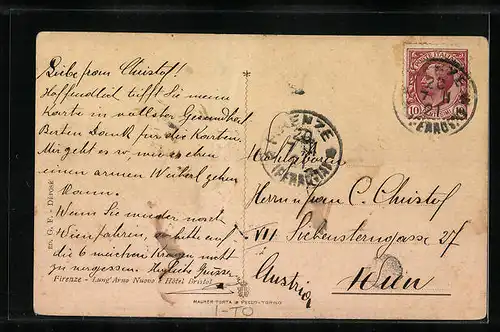 Liebe frau Christof!
Hoffendlich trifft Sie meine
Karte in vollster Gesundheit
Besten Dank für die Karten.
Mir geht es so, wie es eben
einen armen Weiberl gehen
kann.
Wenn Sie wieder nach
Wien fahren, so bitte auf
die 6 weichen nicht
zu vergessen. Herzliche Grüsse
Firenze - Lung' Arno Nuovo - Hôtel Bristol
ed. G. F. - Déposé
MAURER TORTA & PECCO-TORINO
1-TO
FIRENZE
FERROVIA
POSTE ITALIANE
10
FERROVIA
Hochgeboren
Frau C. Christof
VII Siebensterngasse 27
Wien
Austria